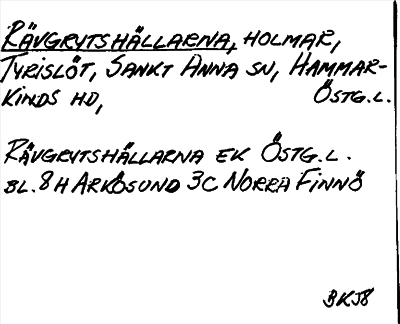 RÄVGRYTSHÄLLARNA, HOLMAR,
TYRISLÖT, SANKT ANNA SN, HAMMAR-
KINDS HD, ÖSTG.L.
RÄVGRYTSHÄLLARNA EK ÖSTG.L.
BL. 8H ARKÖSUND 3C NORRA FINNÖ
BKJ8